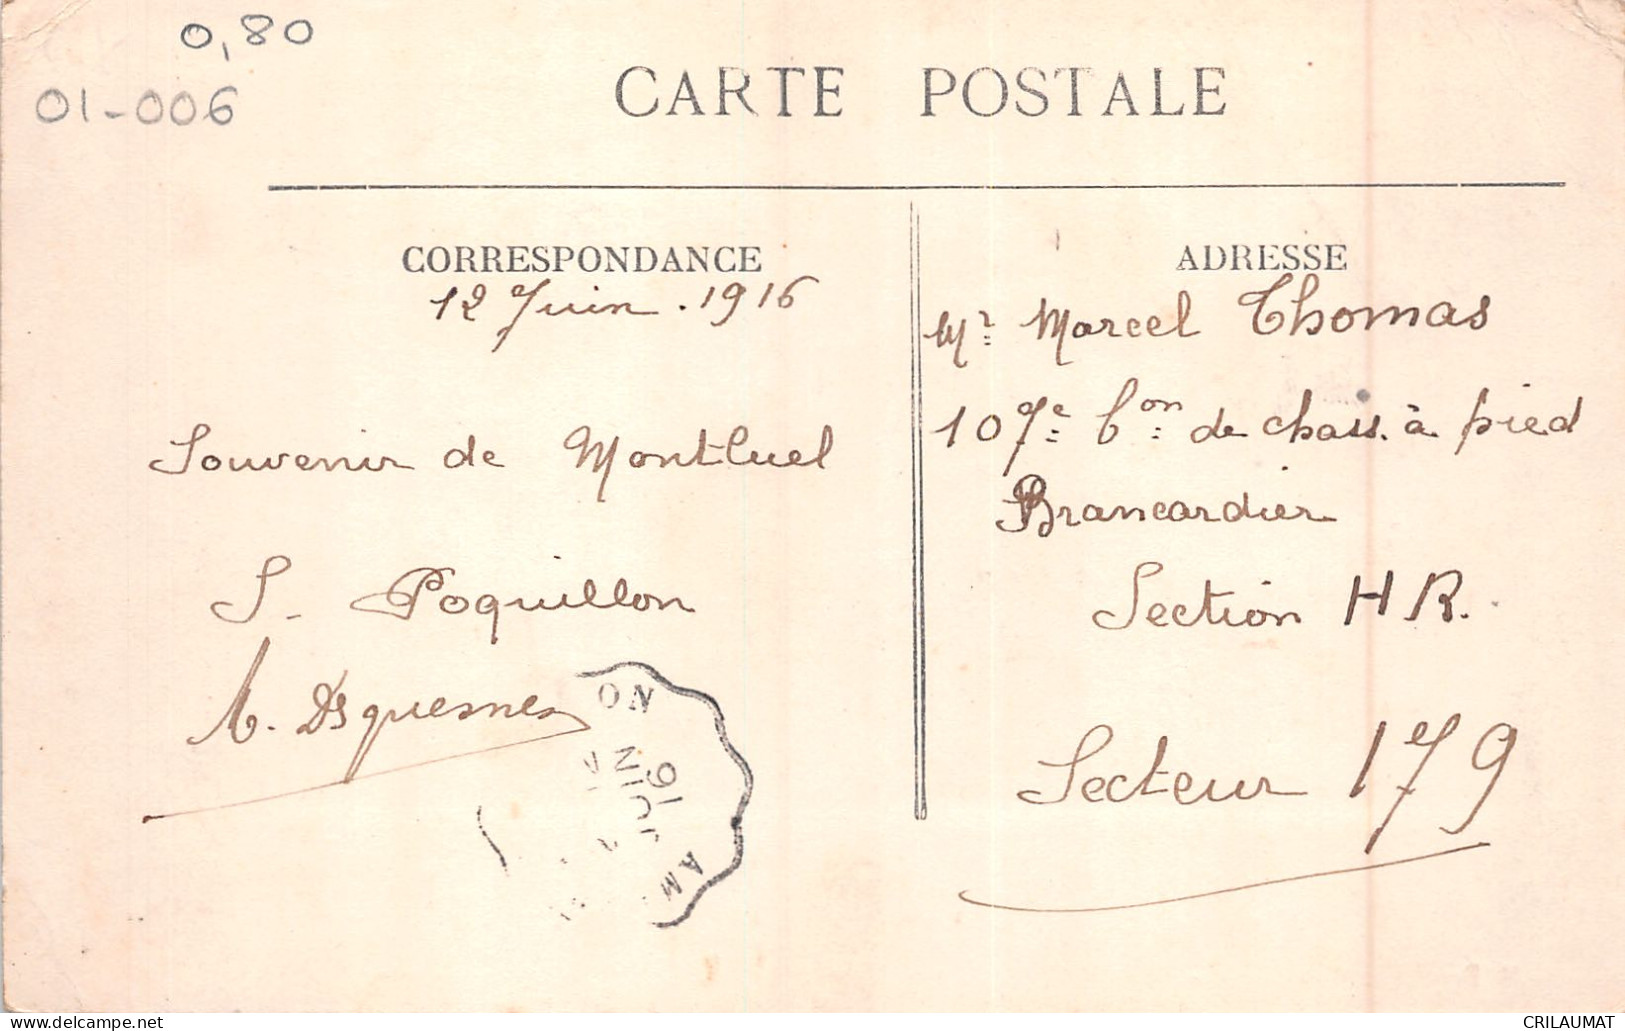 0,80
01-006
CARTE POSTALE
CORRESPONDANCE
12 Juin . 1916
Souvenir de Montluel
S. Poquillon
A. Desquesnes
ADRESSE
Mr Marcel Thomas
107e bon de chass. à pied
Brancardier
Section HR.
Secteur 179
ON
JUIN
16
AM
CRILAUMAT